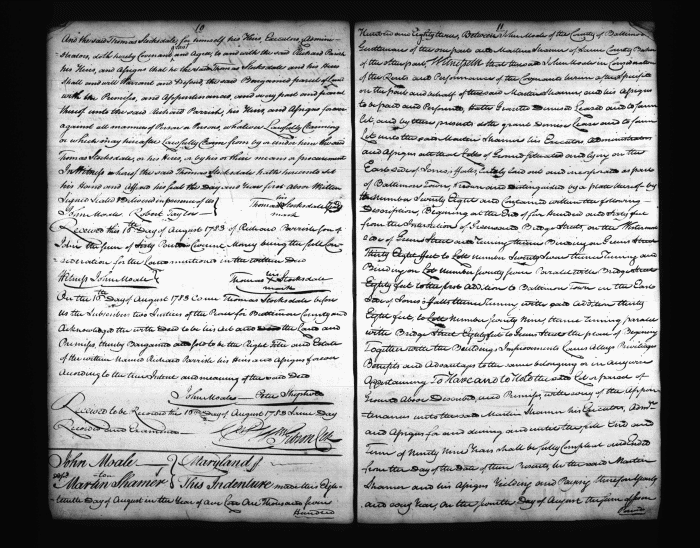 10
And the said Thomas Stocksdale, for himself his Heirs, Executors Admini-
strators, doth hereby Covenant Grant and Agree, to and with the said Richard Parrish
his Heirs, and Assigns that he the said Thomas Stocksdale and his Heirs
Shall and will Warrant and Defend, the said Bargained parcel of Land
with the Premises, and Appurtenances, and every part and parcel
thereof unto the said Richard Parrish, his Heirs, and Assigns from
against all manner of Person or Persons, whatsoever Lawfully Claiming
or which may hereafter Lawfully Claim from by or under him the said
Thomas Stocksdale, or his Heirs, or by his or their means or procurement
In Witness whereof the said Thomas Stocksdale hath hereunto set
his Hand and Affixed his Seal the Day and Year first Above Written
Signed Sealed & Delivered in presence of us
John Moale Robert Taylor
Thomas his mark Stocksdale
Received this 18th Day of August 1783 of Richard Parrish
the sum of Sixty Current Money being the full Con-
sideration for the Land mentioned in the within Deed
Witness John Moale
Thomas his mark Stocksdale
On the 18th Day of August 1783 Came Thomas Stocksdale before
us the Subscribers two Justices of the Peace for Baltimore County and
Acknowledged the within Deed to be his Act and Deed the Land and
Premises, thereby Bargained and sold to be the Right Title and Estate
of the within Named Richard Parrish his Heirs and Assigns forever
According to the true Intent and meaning of the said Deed
John Moale Peter Shepherd
Received to be Recorded the 18th Day of August 1783 same Day
Recorded and Examined
John Moale
to
Martin Shamer
Maryland ss
This Indenture made this Eigh-
teenth Day of August in the Year of our Lord One Thousand Seven
Hundred
11
Hundred and Eighty three, Between John Moale of the County of Baltimore
Gentleman of the one part and Martin Shamer of same County
of the other part Witnesseth that the said John Moale in Consideration
of the Rents and Performance of the Covenants herein after specified
on the part and behalf of the said Martin Shamer and his Assigns
to be paid and Performed, hath Granted Demised Leased and to farm
Let, and by these presents doth grant Demise Lease and to farm
Let unto the said Martin Shamer his Executors Administrators
and Assigns all those Lotts of Ground situated and lying on the
East side of Jones's Falls lately laid out and as part
of Baltimore Town, Known and distinguished by a plat thereof by
the Number Seventy Eight and Contained within the following
Description, Begining at the End of four hundred and sixty feet
from the Intersection of and Bridge Street, on the
side of Green Street and Runing thence Bounding on Green Street
Thirty Eight feet to Lott Number Seventy Seven thence Runing and
Bounding on Lott Number Seventy Seven Parallel with Bridge Street
Eighty feet to the first Addition to Baltimore Town on the East
side of Jones's Falls thence Runing with said Addition thirty
Eight feet, to Lott Number Seventy Nine, thence Runing parallel
with Bridge Street Eighty feet to Green Street the place of Begining
Together with the Buildings Improvements Lanes Alleys Privileges
Benefits and Advantages to the same belonging or in anywise
Appertaining To Have and to Hold the said Lot or parcel of
Ground Above Described, and Premises, with every of the Appur-
tenances unto the said Martin Shamer his Executors, Admrs
and Assigns for and during and until the full End and
Term of Ninety Nine Years shall be fully Compleat and Ended
from the Day of the Date of these Presents he the said Martin
Shamer and his Assigns Yielding and Paying therefor Yearly
and every Year, on the fourth Day of August the sum of